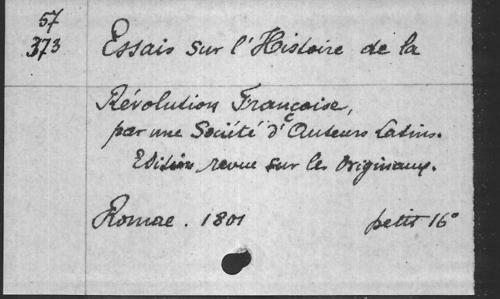 57
373
Essais sur l'Histoire de la
Révolution Françoise,
par une Société d'Auteurs Latins.
Edition revue sur les Originaux.
Romae. 1801 petit 16°